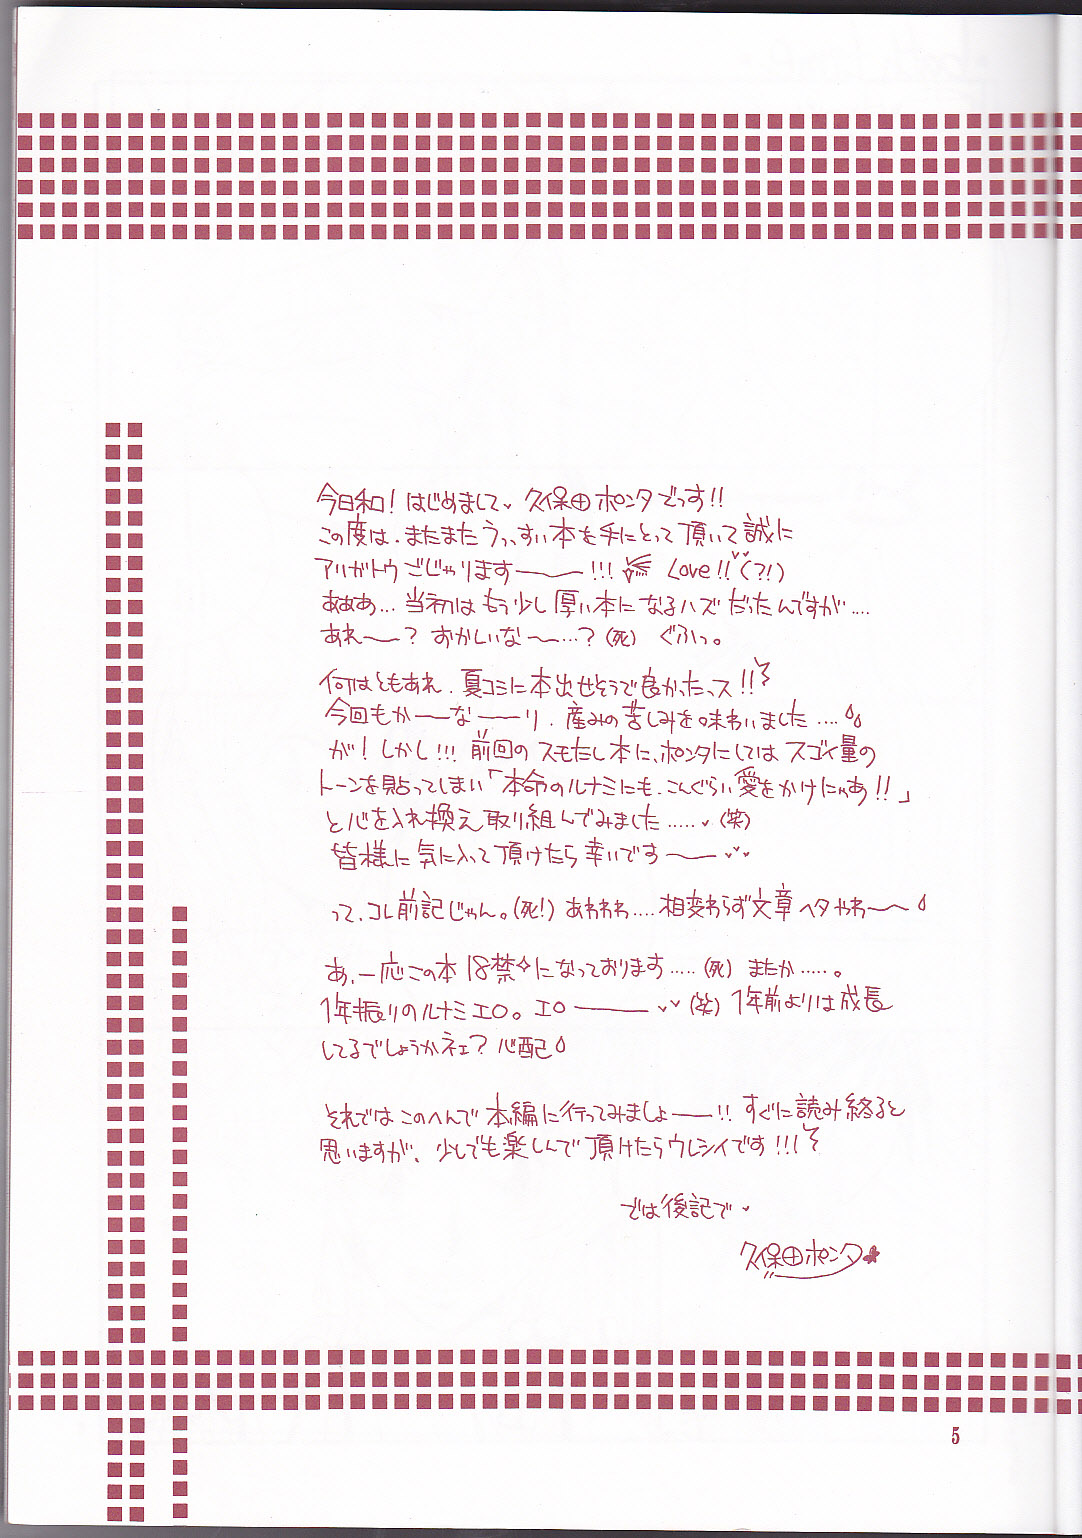 今日和!はじめまして♥久保田ポンタでっす!!
この度は、またまたうっっすい本を手にとって頂いて誠に
アリガトウごじゃりますーー!!! Love!!♥♥(?!)
あああ…当初はもう少し厚い本になるハズだったんですが….
あれ〜?おかしいな〜…?(死)ぐふっ。
何はともあれ、夏コミに本出せそうで良かったっス!!
今回もかーーなーーり、産みの苦しみを味わいました….
が!しかし!!!前回のスモたし本に、ポンタにしてはスゴイ量の
トーンを貼ってしまい「本命のルナミにも、こんぐらい愛をかけにゃあ!!」
と心を入れ換え取り組んでみました…..♥(笑)
皆様に気に入って頂けたら幸いですーー♥♥
って、コレ前記じゃん。(死!)あわわわ….相変わらず文章ヘタやわ〜〜
あ、一応この本18禁✧になっております…..(死)またか…..。
1年振りのルナミエロ。エローーー♥♥(笑)1年前よりは成長
してるでしょうかネェ?心配
それではこのへんで本編に行ってみましょーー!!すぐに読み終ると
思いますが、少しでも楽しんで頂けたらウレシイです!!!
では後記で♥
久保田ポンタ
5